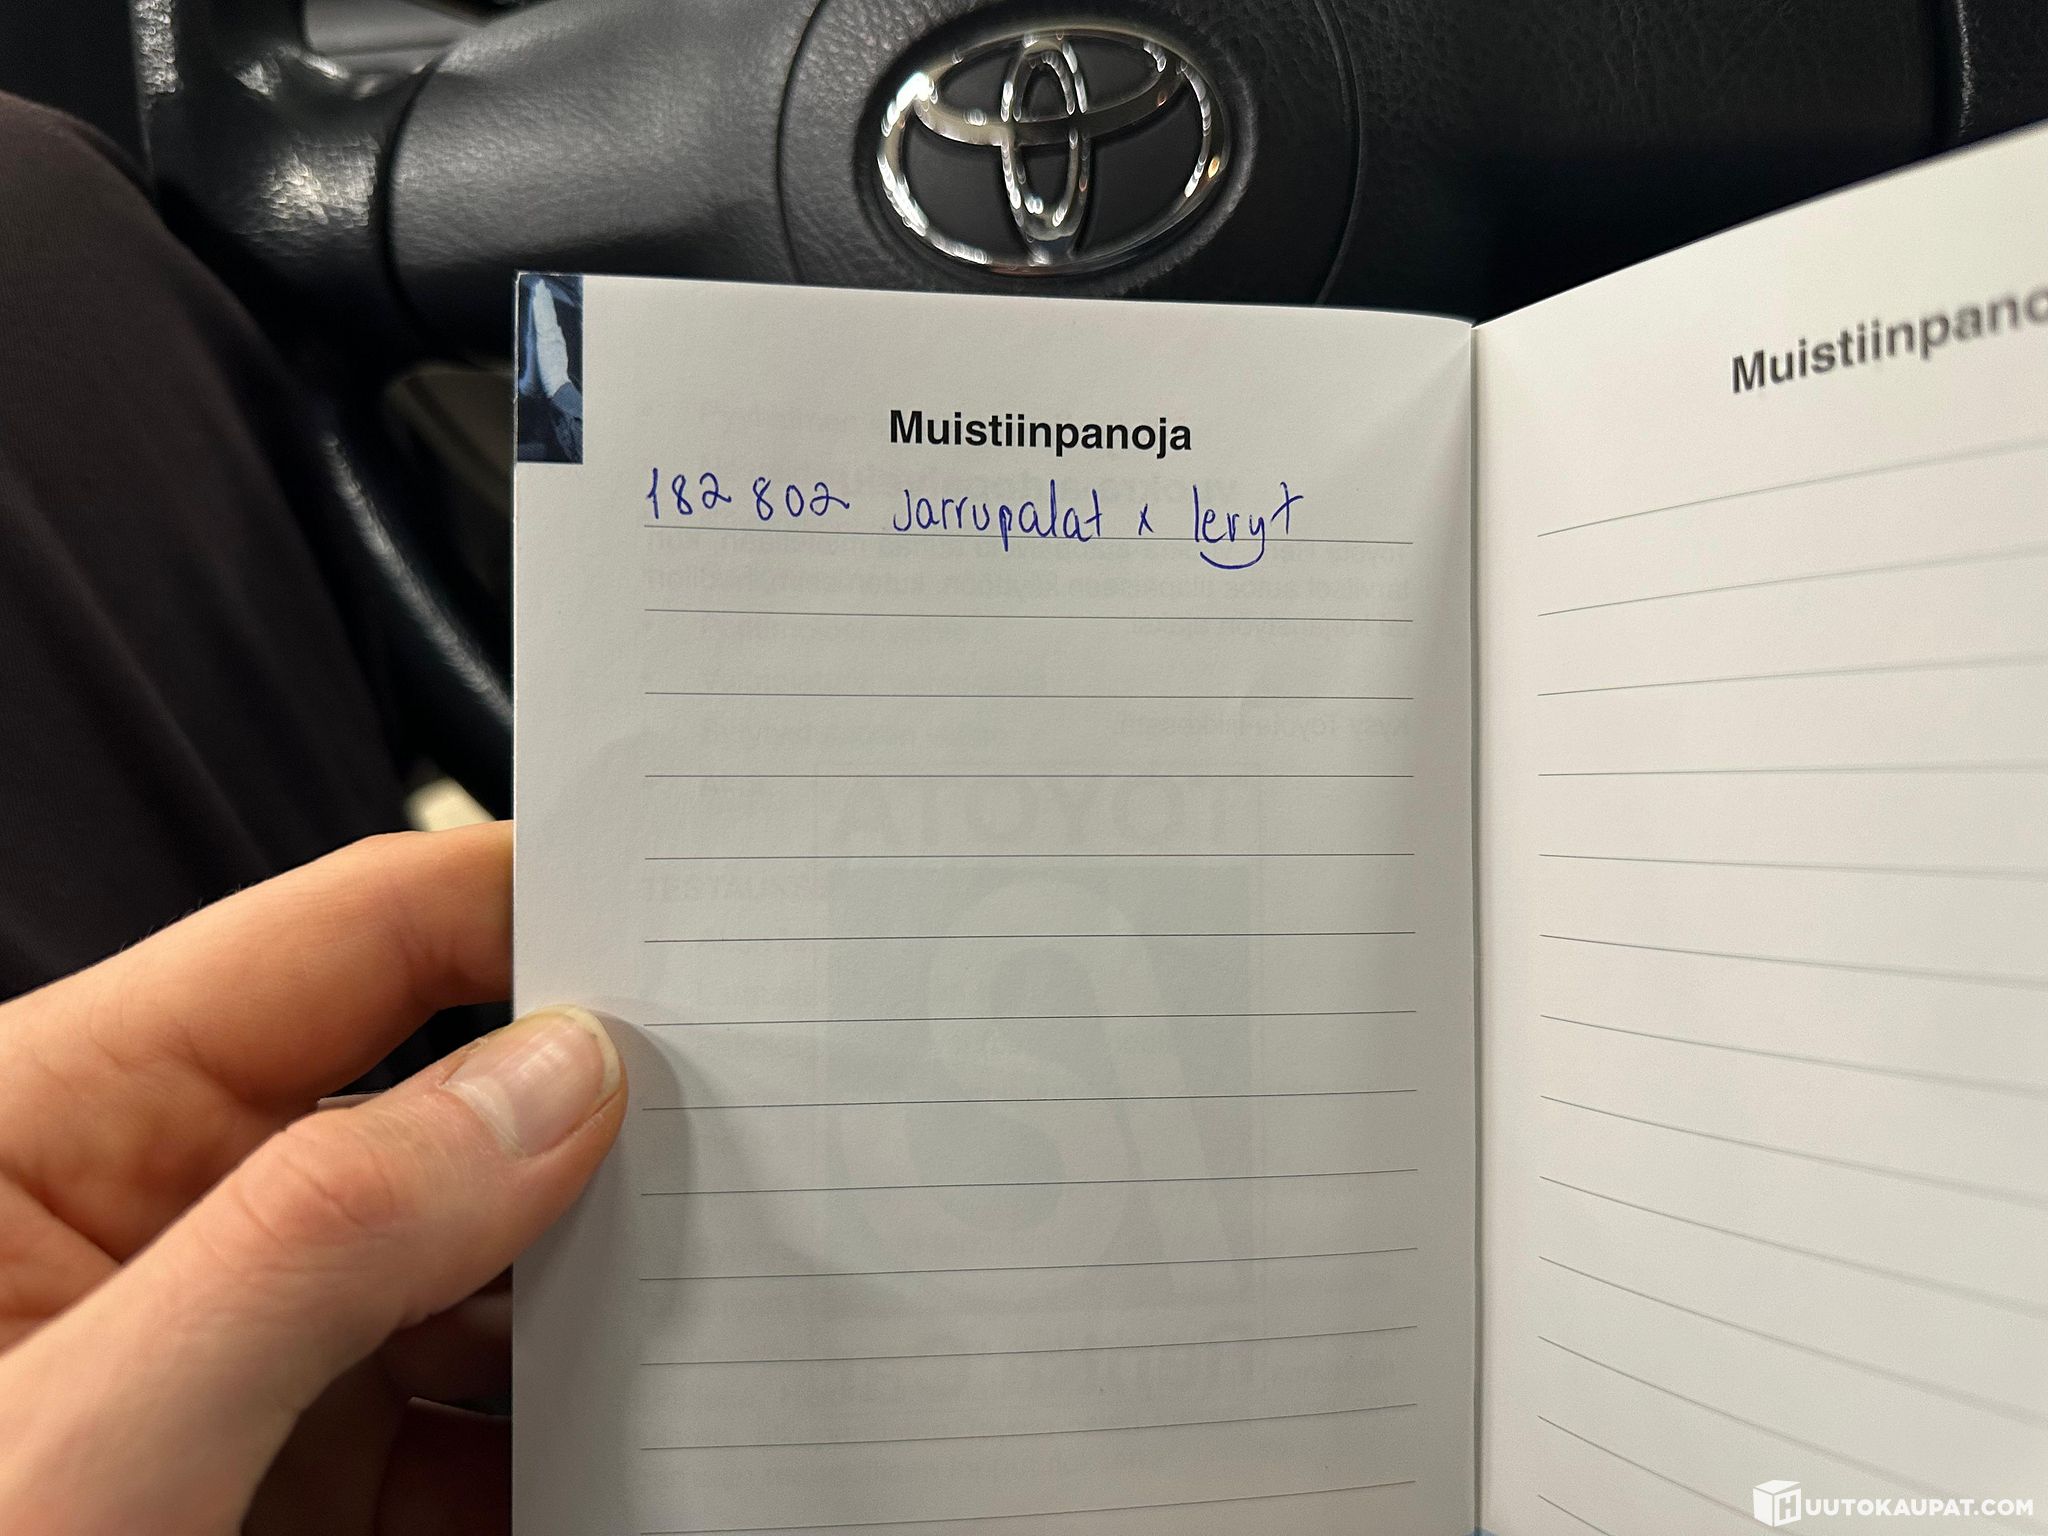 Muistiinpanoja
182 802 Jarrupalat x levyt
Muistiinpano
HUUTOKAUPAT.COM